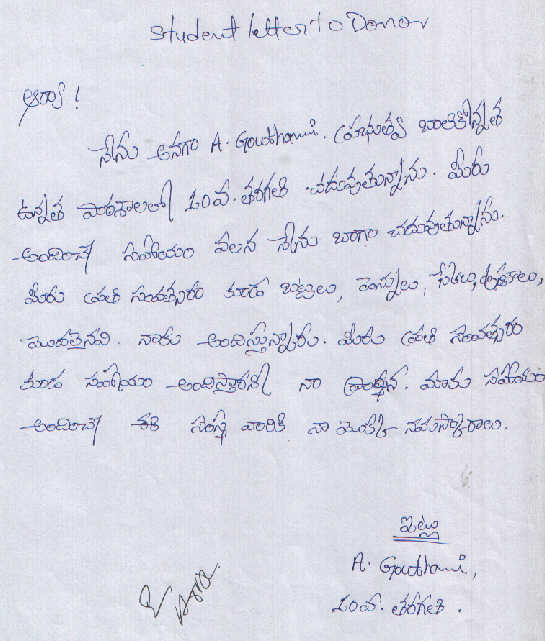 Student letter to Donor
ఆర్యా!
నేను అనగా A. Gouthami. ప్రభుత్వ బాలికోన్నత
ఉన్నత పాఠశాలలో 10వ. తరగతి చదువుతున్నాను. మీరు
అందించే సహాయం వలన నేను బాగా చదువుతున్నాను.
మీరు ప్రతి సంవత్సరం కూడా బట్టలు, పెన్నులు, పుస్తకాలు,
మొదలైనవి. నాకు అందిస్తున్నారు. మీరు ప్రతి సంవత్సరం
కూడా సహాయం అందిస్తారని నా ప్రార్థన. మాకు సహాయం
అందించే ఈ సంస్థ వారికి నా మొక్క నమస్కారాలు.
ఇట్లు
A. Gouthami,
10వ. తరగతి.